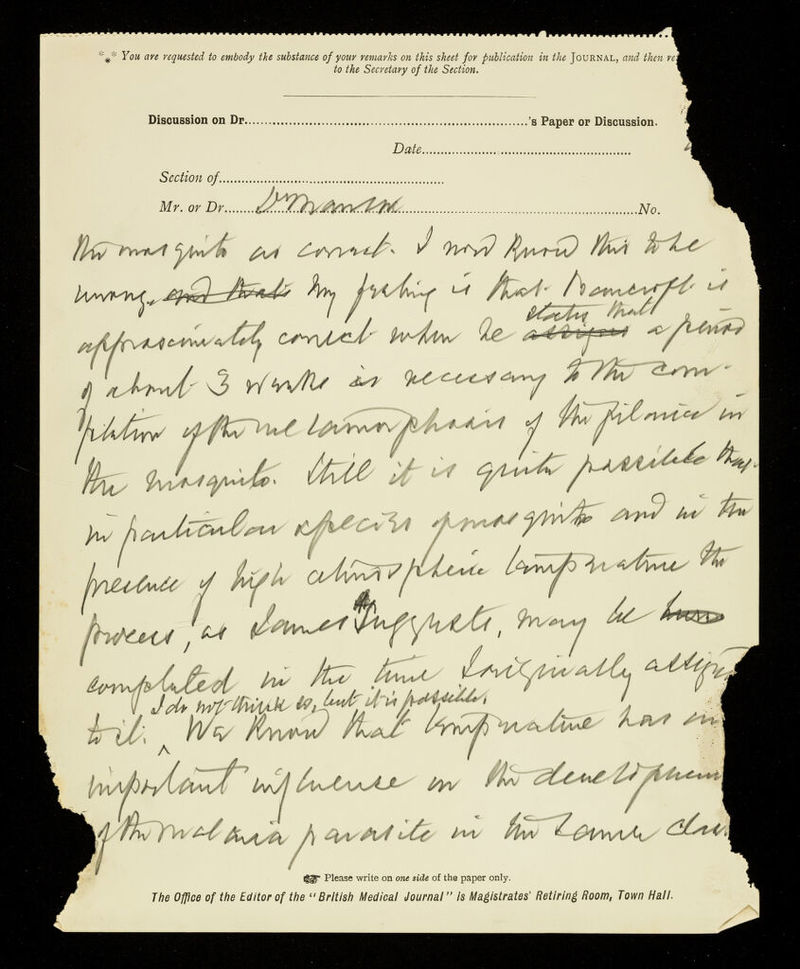 *** You are requested to embody the substance of your remarks on this sheet for publication in the JOURNAL, and then re
to the Secretary of the Section.
Discussion on Dr. 's Paper or Discussion.
Date
Section of
Mr. or Dr. Dr Manson No.
the mosquito as correct. I now know this to be
wrong, and that My feeling is that Bancroft is
states that
approximately correct when he assigns a period
of about 3 weeks as necessary to the com-
pletion of the metamorphosis of the filaria in
the mosquito. Still it is quite possible that
in particular species of mosquito and in the
presence of high atmospheric temperature the
process, as James suggests, may be
completed in the time I originally assign
I do not think so, but it is possible.
to it. ^ We know that temperature has an
important influence on the developmen
of the malaria parasite in the same class
Please write on one side of the paper only.
The Office of the Editor of the "British Medical Journal" is Magistrates' Retiring Room, Town Hall.